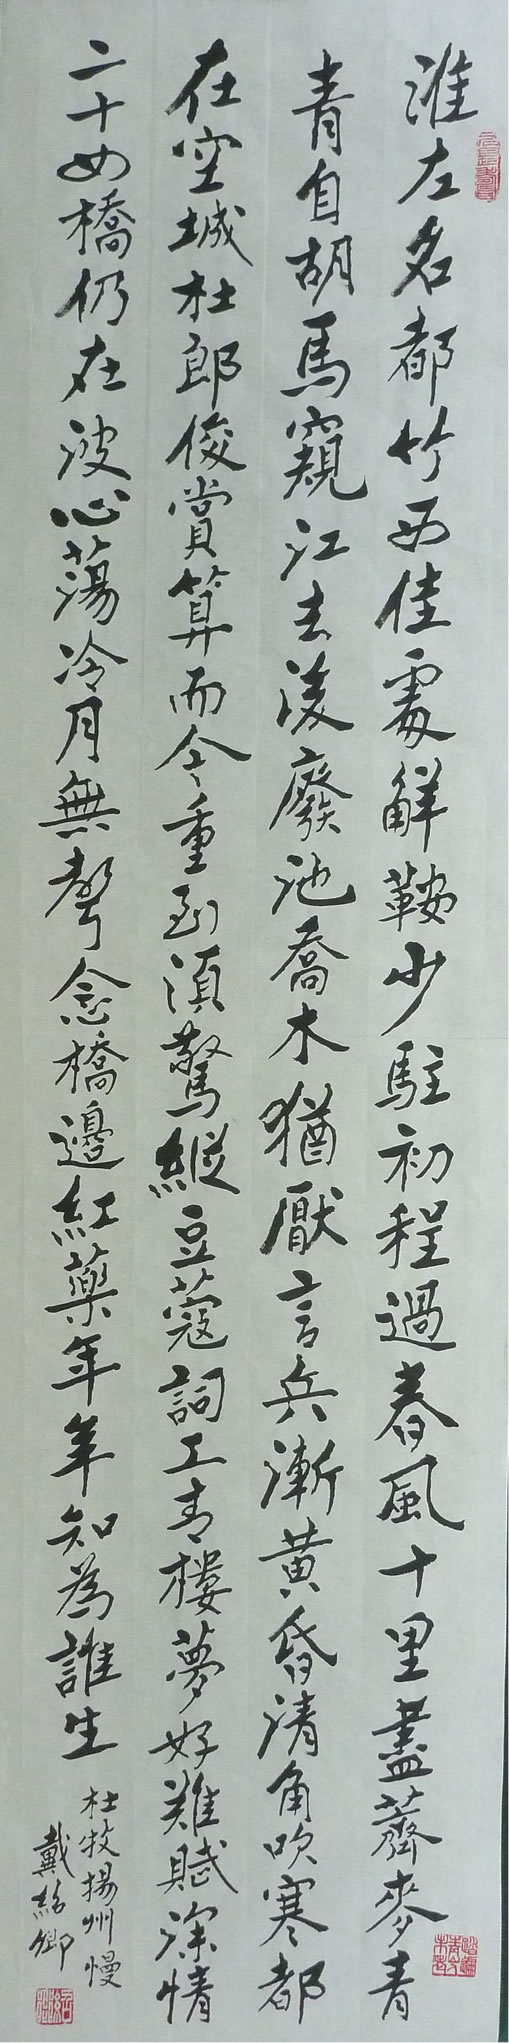 淮左名都竹西佳處解鞍少駐初程過春風十里盡薺麥青
青自胡馬窺江去後廢池喬木猶厭言兵漸黃昏清角吹寒都
在空城杜郎俊賞算而今重到須驚縱豆蔻詞工青樓夢好難賦深情
二十四橋仍在波心蕩冷月無聲念橋邊紅藥年年知為誰生
杜牧揚州慢
戴紹卿